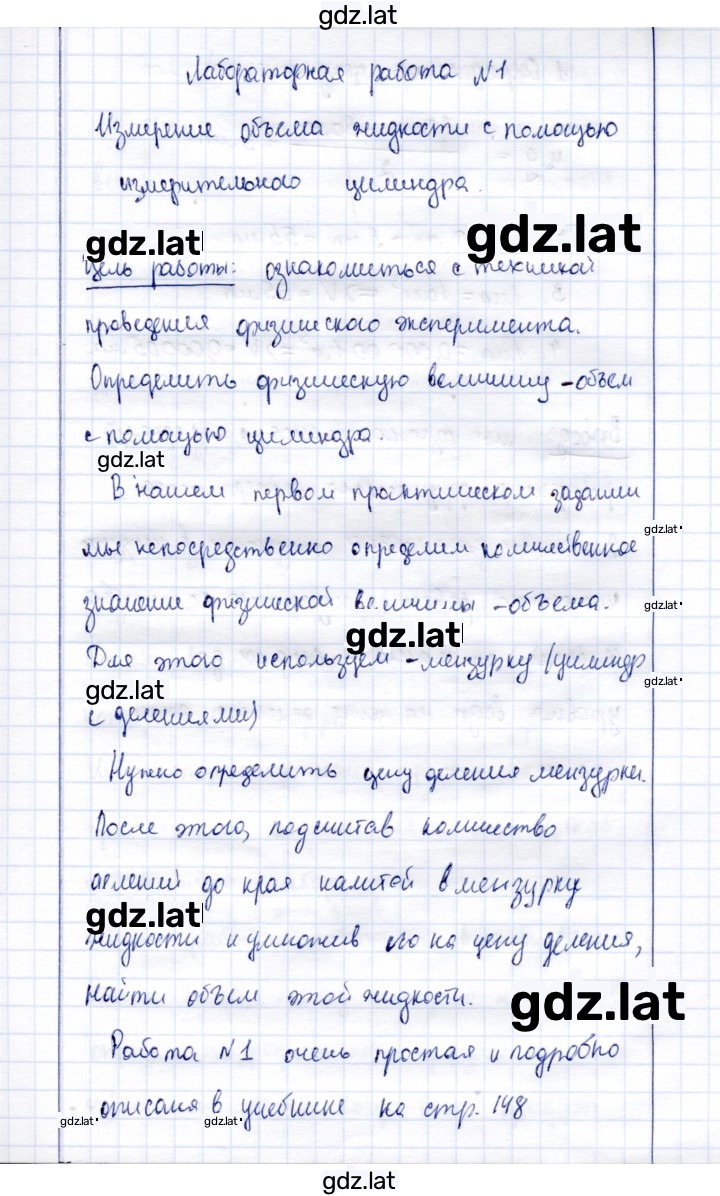 gdz.lat
Лабораторная работа №1
Измерение объема жидкости с помощью
измерительного цилиндра.
gdz.lat gdz.lat
Цель работы: ознакомиться с техникой
проведения физического эксперимента.
Определить физическую величину - объем
с помощью цилиндра.
gdz.lat
В нашем первом практическом задании
gdz.lat
мы непосредственно определим количественное
значение физической величины - объема.
gdz.lat
gdz.lat
Для этого используем - мензурку (цилиндр
gdz.lat
gdz.lat
с делениями)
Нужно определить цену деления мензурки.
После этого, подсчитав количество
делений до края налитой в мензурку
gdz.lat
жидкости и умножив его на цену деления,
найти объем этой жидкости.
gdz.lat
Работа №1 очень простая и подробно
описана в учебнике на стр. 148
gdz.lat gdz.lat
gdz.lat